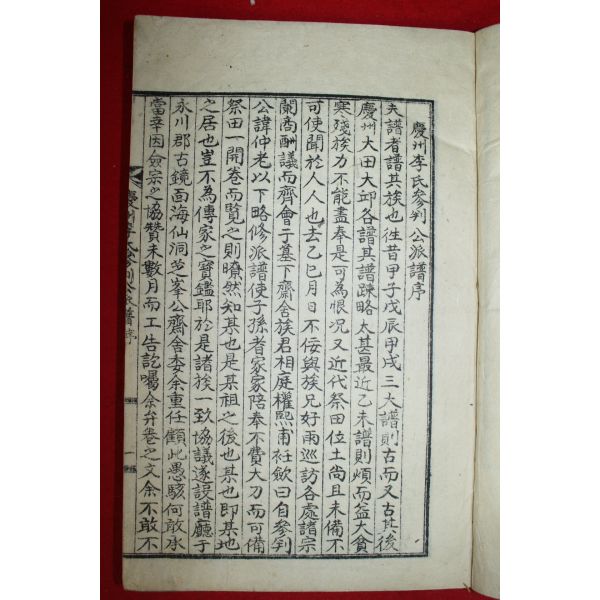 慶州李氏參判公派譜序
夫譜者譜其族也徃昔甲子戊辰甲戌三大譜則古而又古其後
慶州大田大邱各譜其譜踈略太甚最近乙未譜則煩而益大貧
寒殘族力不能盡奉是可為恨况又近代祭田位土尚且未備不
可使聞於人人也去乙巳月日不佞與族兄好雨巡訪各處諸宗
爛啇酬議而齊會于墓下齋舍族君相庭權熙甫衽歛曰自參判
公諱仲老以下略修派譜使子孫者家家陪奉不費大刀而可備
祭田一開卷而覧之則瞭然知某也是某祖之後也某也即某地
之居也豈不為傳家之寶鑑耶於是諸族一致協議遂設譜廳于
永川郡古鏡面海仙洞芝峯公齋舎委余重任顧此愚駭何敢承
當幸因僉宗之協贊未數月而工告訖囑余弁卷之文余不敢不
慶州李氏參判公派譜序 一